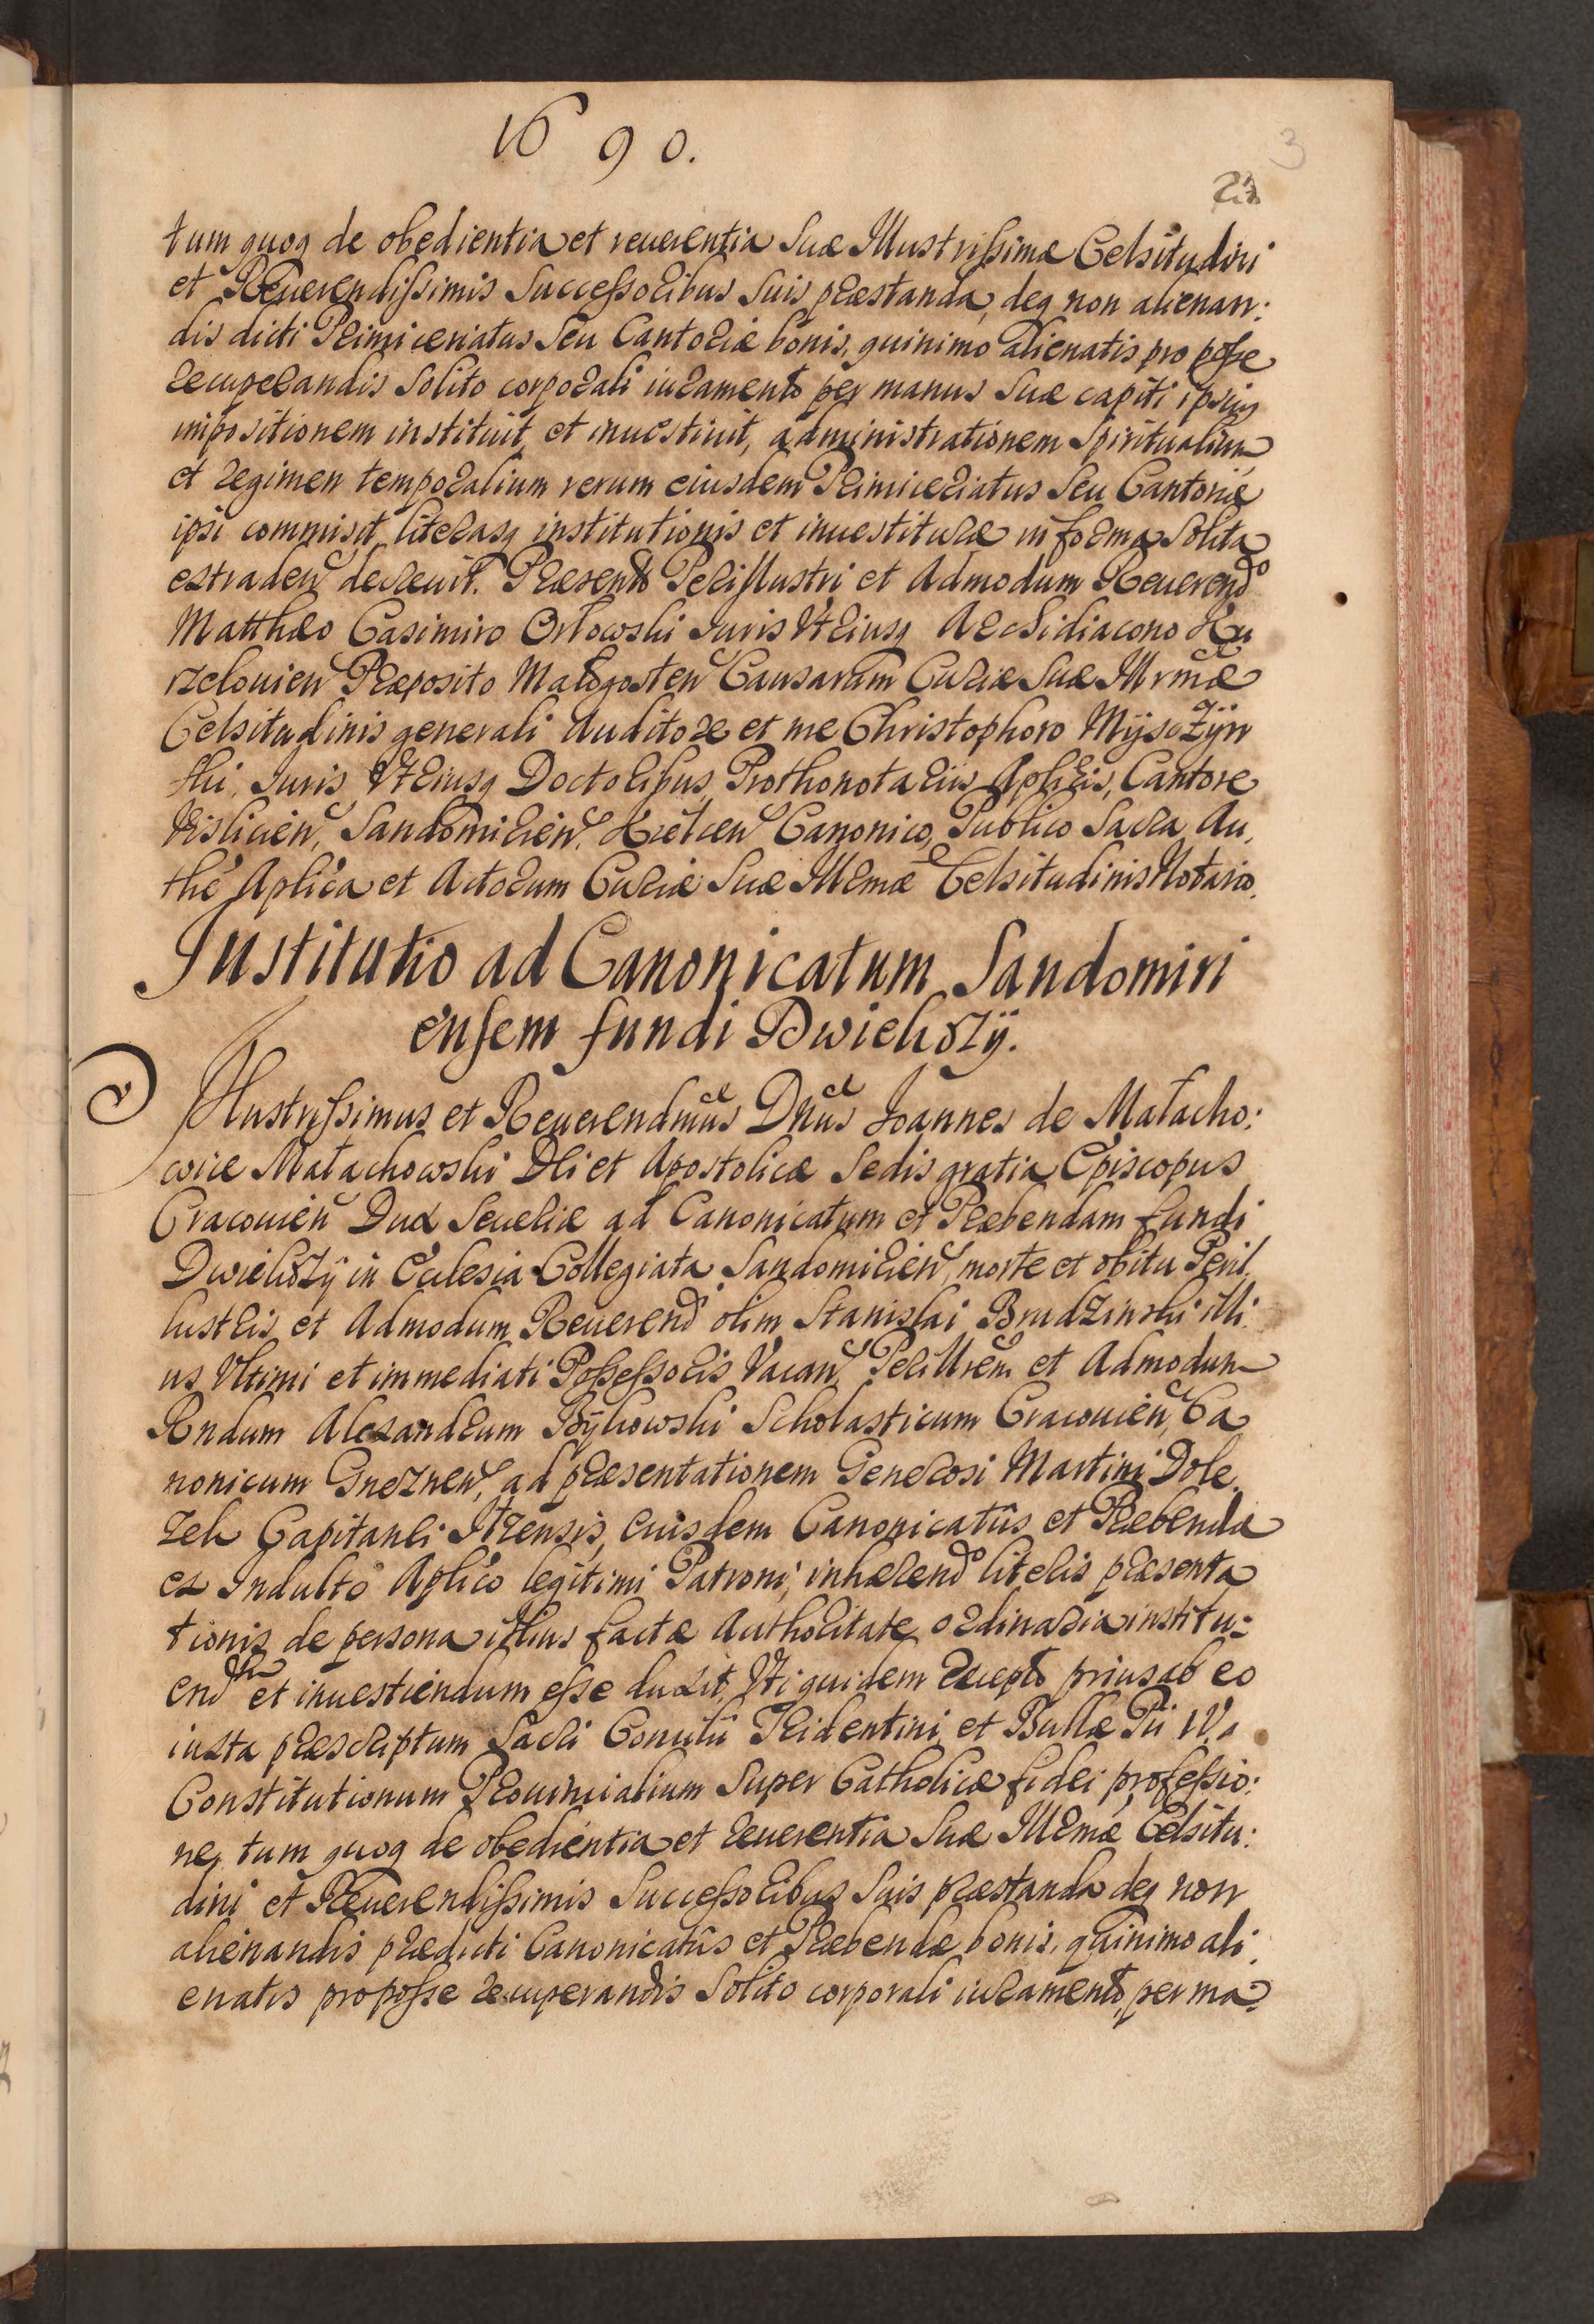 16 90.
3
tum quoq de obedientia et reuerentia Suæ Illustrissimæ Celsitudini
et Reuerendissimis Successoribus Suis præstanda, deq non alienan:
dis dicti Primiceriatus Seu Cantoriæ bonis, quinimo alienatis pro posse
recuperandis Solito corporali iuramento per manus Suæ capiti ipsius
impositionem instituit, et inuestiuit, administrationem Spiritualium
et regimen temporalium rerum eiusdem Primiceriatus Seu Cantoriæ
ipsi commisit, literasq institutionis et inuestituræ in forma Solita
extraden decreuit. Præsente Perillustri et Admodum Reuerendo
Matthæo Casimiro Orłowski Iuris Vtriusq Archidiacono Ku
rzelouien Præposito Małogosten Causarum Curiæ Suæ Illrmæ
Celsitudinis generali Auditore et me Christophoro Mysożÿn
ski, Iuris Vtriusq Doctoribus, Prothonotariis Aplicis, Cantore
Vislicien, Sandomirien, Kielcen Canonico, Publico Sacra Au,
the Aplica et Actorum Curiæ Suæ Illrmæ Celsitudinis Notario.
Institutio ad Canonicatum Sandomiri
ensem fundi Dwiekozÿ.
Illustrissimus et Reuerendmus Dnus Ioannes de Małacho:
wice Małachowski Dei et Apostolicæ Sedis gratia Episcopus
Cracouien Dux Seueriæ ad Canonicatum et Præbendam fundi
Dwiekozÿ in Ecclesia Collegiata Sandomirien, morte et obitu Peril
lustris et Admodum Reuerendi olim Stanislai Brudzinski illi
us Vltimi et immediati Possessoris Vacan, Perillrem et Admodum
Rndum Alexandrum Bÿkowski Scholasticum Cracouien, Ca
nonicum Gneznen, ad præsentationem Generosi Martini Dole
zek Capitanei Ilzensis, euisdem Canonicatus et Præbendæ
ex Indulto Aplico legitimi Patroni, inhærendo literis præsenta
tionis de persona illius factæ Authoritate ordinaria institu:
endum et inuestiendum esse duxit, Vti quidem recepto prius ab eo
iuxta præscriptum Sacri Concilii Tridentini, et Bullæ Pii IV.
Constitutionum Prouincialium Super Catholicæ fidei professio:
ne, tum quoq de obedientia et reuerentia Suæ Illrmæ Celsitu:
dini et Reuerendissimis Successoribus Suis præstanda deq non
alienandis prædicti Canonicatus et Præbendæ bonis, quinimo ali
enatis pro posse recuperandis Solito corporali iuramento, per ma: